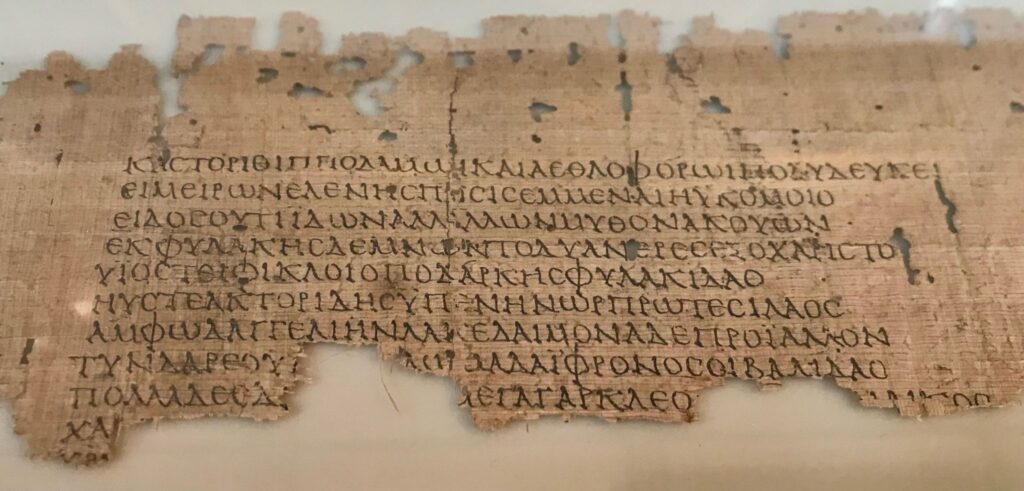 ΚΑΣΤΟΡΙΘΙΠΠΟΔΑΜΩΙΚΑΙΑΕΘΛΟΦΟΡΩΙΠΟΛΥΔΕΥΚΕΙ
ΕΙΜΕΙΡΩΝΕΛΕΝΗΣΠΟΣΙΣΕΜΜΕΝΑΙΗΥΚΟΜΟΙΟ
ΕΙΔΟΣΟΥΤΙΪΔΩΝΑΛΛΑΛΛΩΝΜΥΘΟΝΑΚΟΥΩΝ
ΕΚΦΥΛΑΚΗΣΔΕΜΝΩΝΤΟΔΥΑΝΕΡΕΣΕΞΟΧΑΡΙΣΤΟΙ
ΥΙΟΣΤΕΙΦΙΚΛΟΙΟΠΟΔΑΡΚΗΣΦΥΛΑΚΙΔΑΟ
ΗΥΣΤΕΑΚΤΟΡΙΔΗΣΥΠΕΡΗΝΩΡΠΡΩΤΕΣΙΛΑΟΣ
ΑΜΦΩΔΑΓΓΕΛΙΗΝΛΑΚΕΔΑΙΜΟΝΑΔΕΠΡΟΪΑΛΛΟΝ
ΤΥΝΔΑΡΕΟΥ ΜΑΔΑΪΦΡΟΝΟΣΟΙΒΑΛΙΔΑΟ
ΠΟΛΛΑΔΕΕΔ ΜΕΓΑΓΑΡΚΛΕΟ ΑΙΚΟΣ
ΧΑΛ